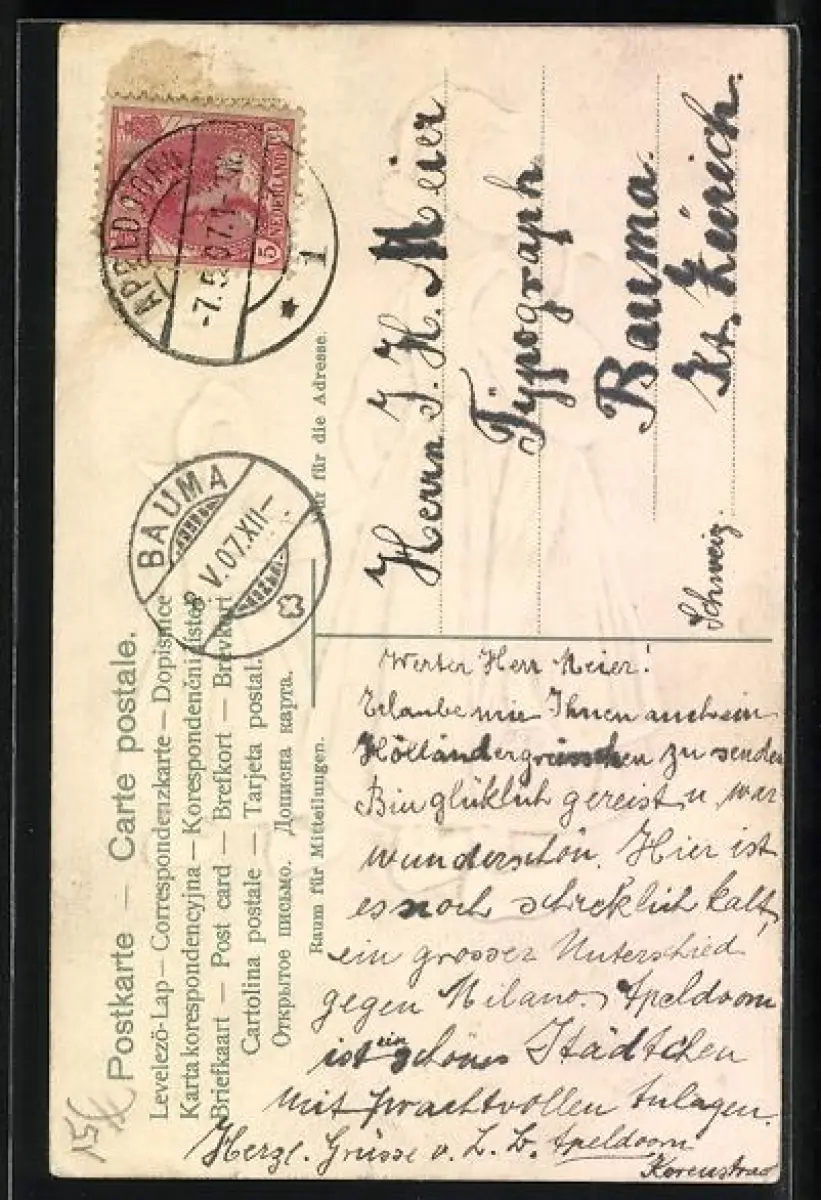 Postkarte — Carte postale.
Levelező-Lap — Correspondenzkarte — Dopisnice
Karta korespondencyjna — Korespondenčni listek
Briefkaart — Post card — Brefkort — Brevkort
Cartolina postale — Tarjeta postal.
Открытое письмо. Дописна карта.
Raum für Mitteilungen.
Nur für die Adresse.
5 NEDERLAND
APELDOORN
-7.5.07.1
1
BAUMA
8 V.07.XII-
Herrn J. H. Meier
Typograph
Bauma.
Kt. Zürich.
Schweiz.
Werter Herr Meier!
Erlaube mir Ihnen auch ein
Hölländergrüsschen zu senden
Bin glüklich gereist u war
wunderschön. Hier ist
es noch schreklich kalt,
ein grosser Unterschied
gegen Milano. Apeldoorn
ist ein schönes Städtchen
mit prachtvollen Anlagen.
Herzl. Grüsse v. L. B. Apeldoorn